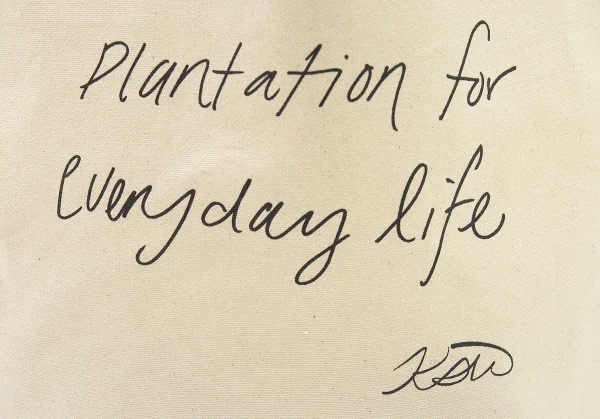 Plantation for
everyday life